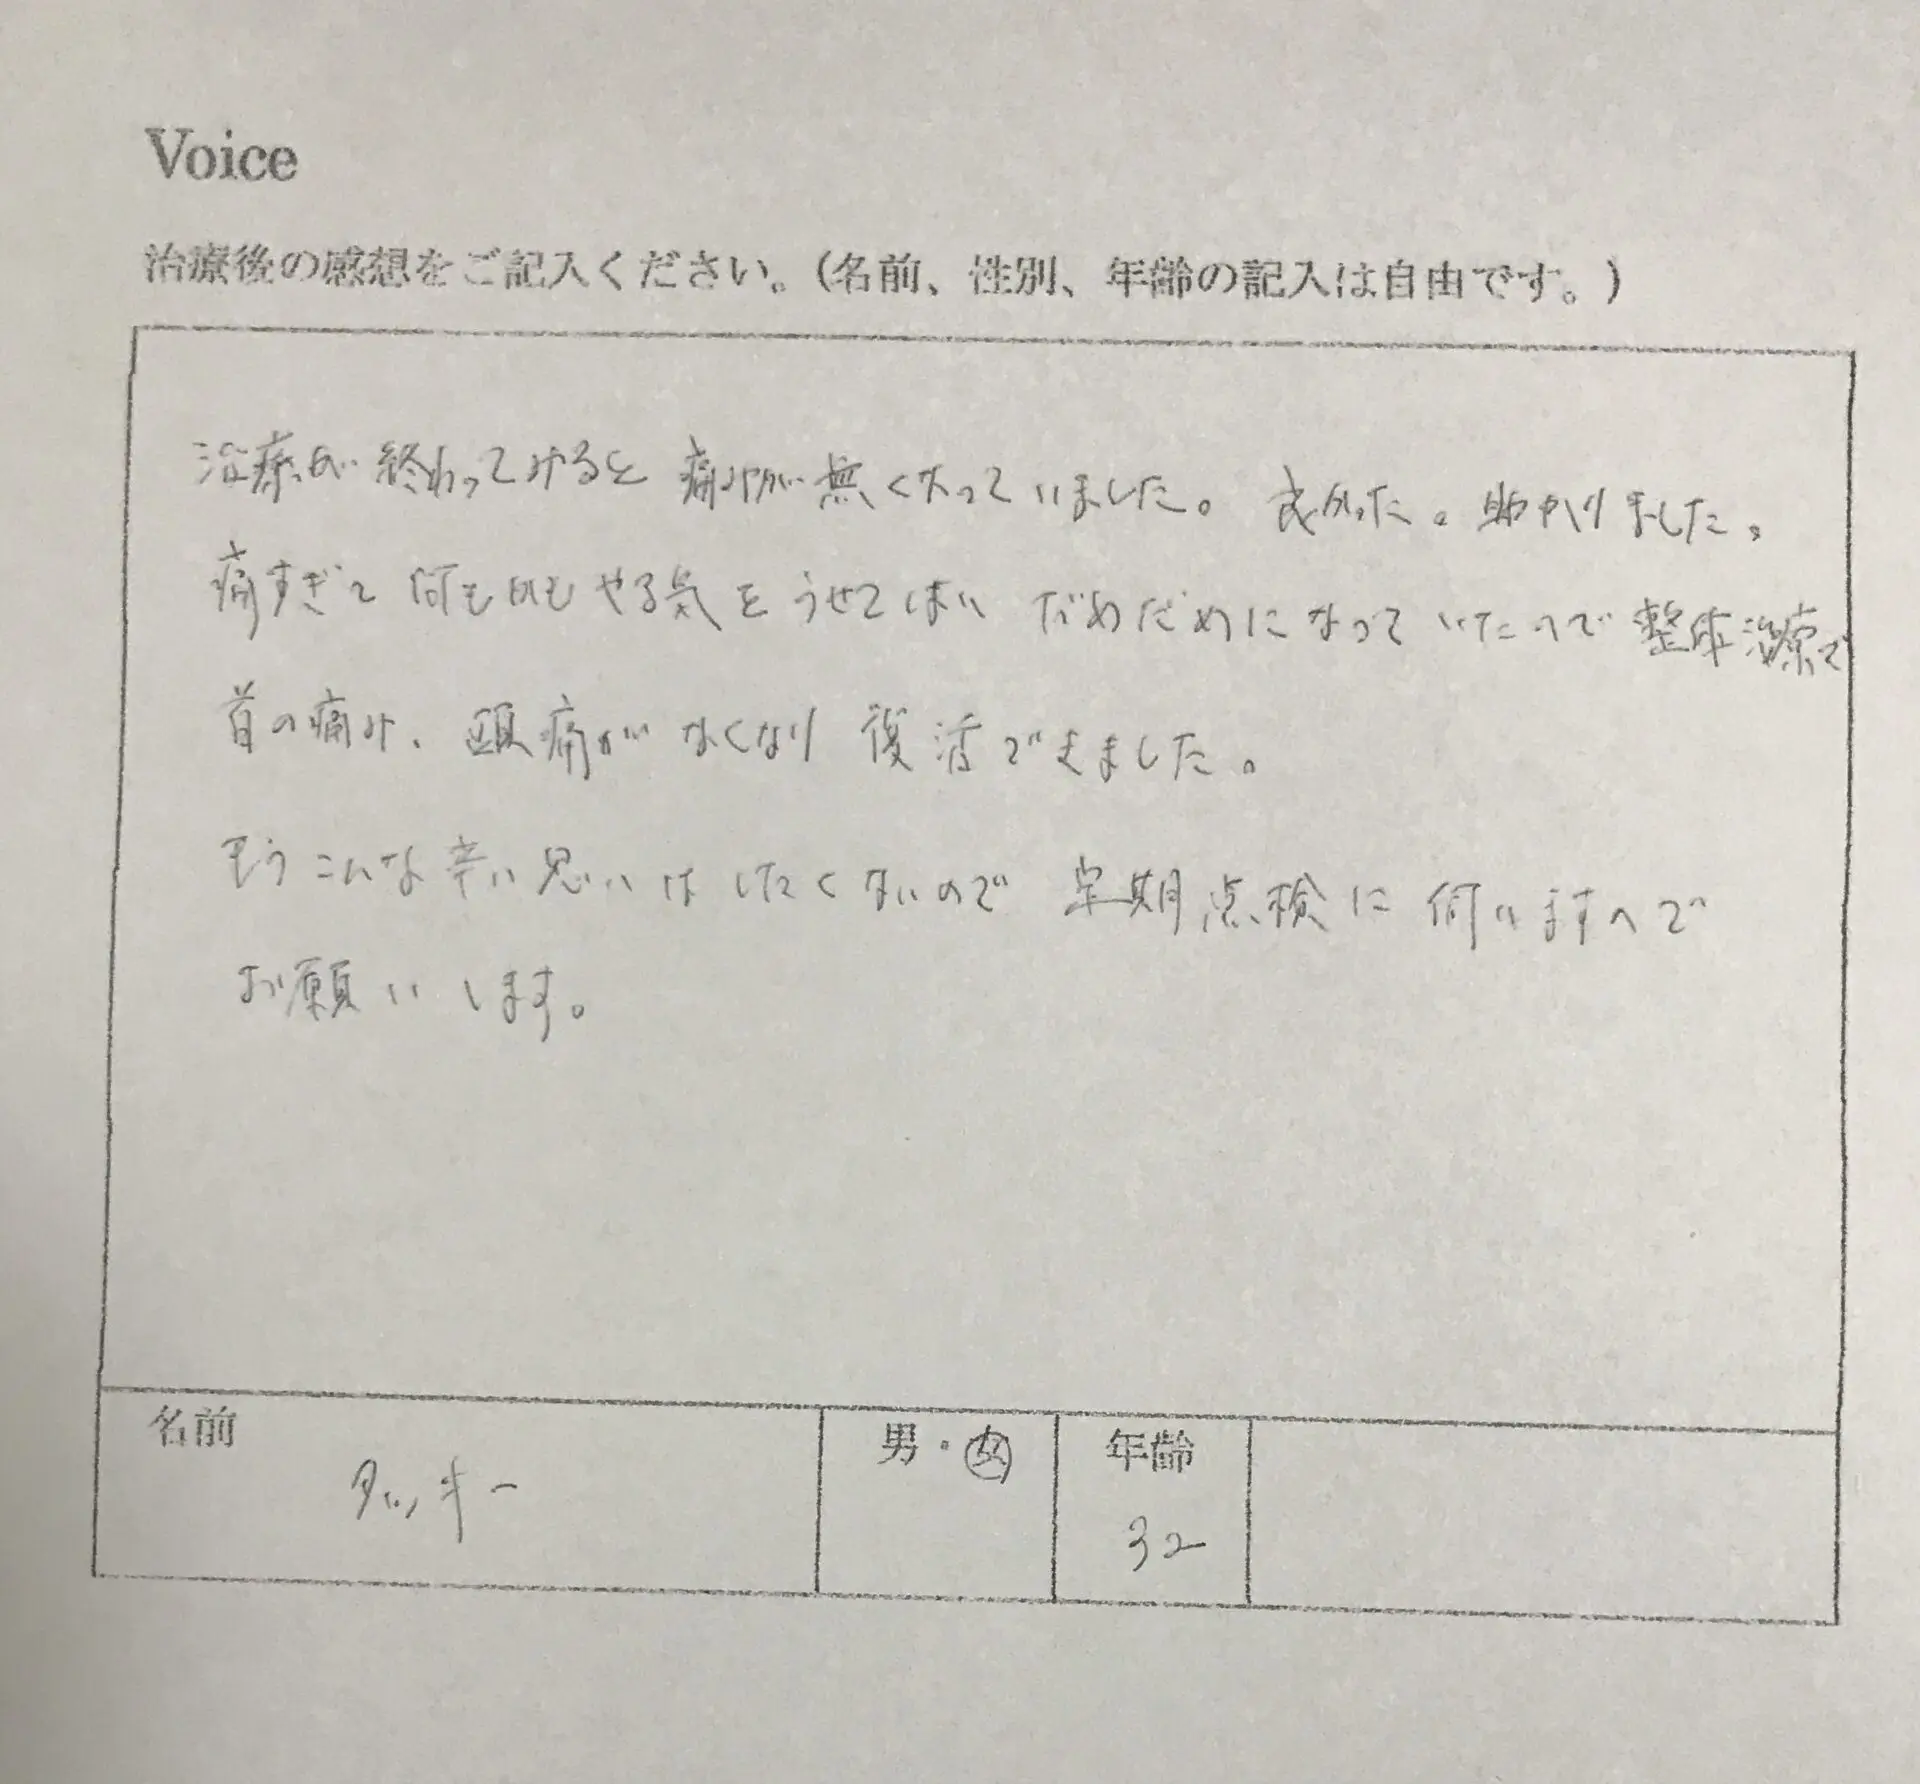 Voice
治療後の感想をご記入ください。(名前、性別、年齢の記入は自由です。)
治療が終わってみると痛みが無くなっていました。良かった。助かりました。
痛すぎて何もかもやる気をうせてしまい だめだめになっていたので整体治療で
首の痛み、頭痛がなくなり復活できました。
もうこんな辛い思いはしたくないので 定期点検に伺いますので
お願いします。
名前 男・女 年齢
タッキー 32